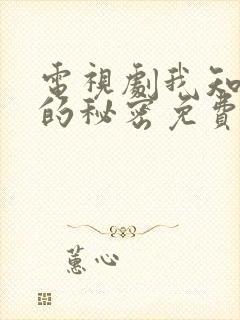 電視劇我知
的秘密免費
蕙心